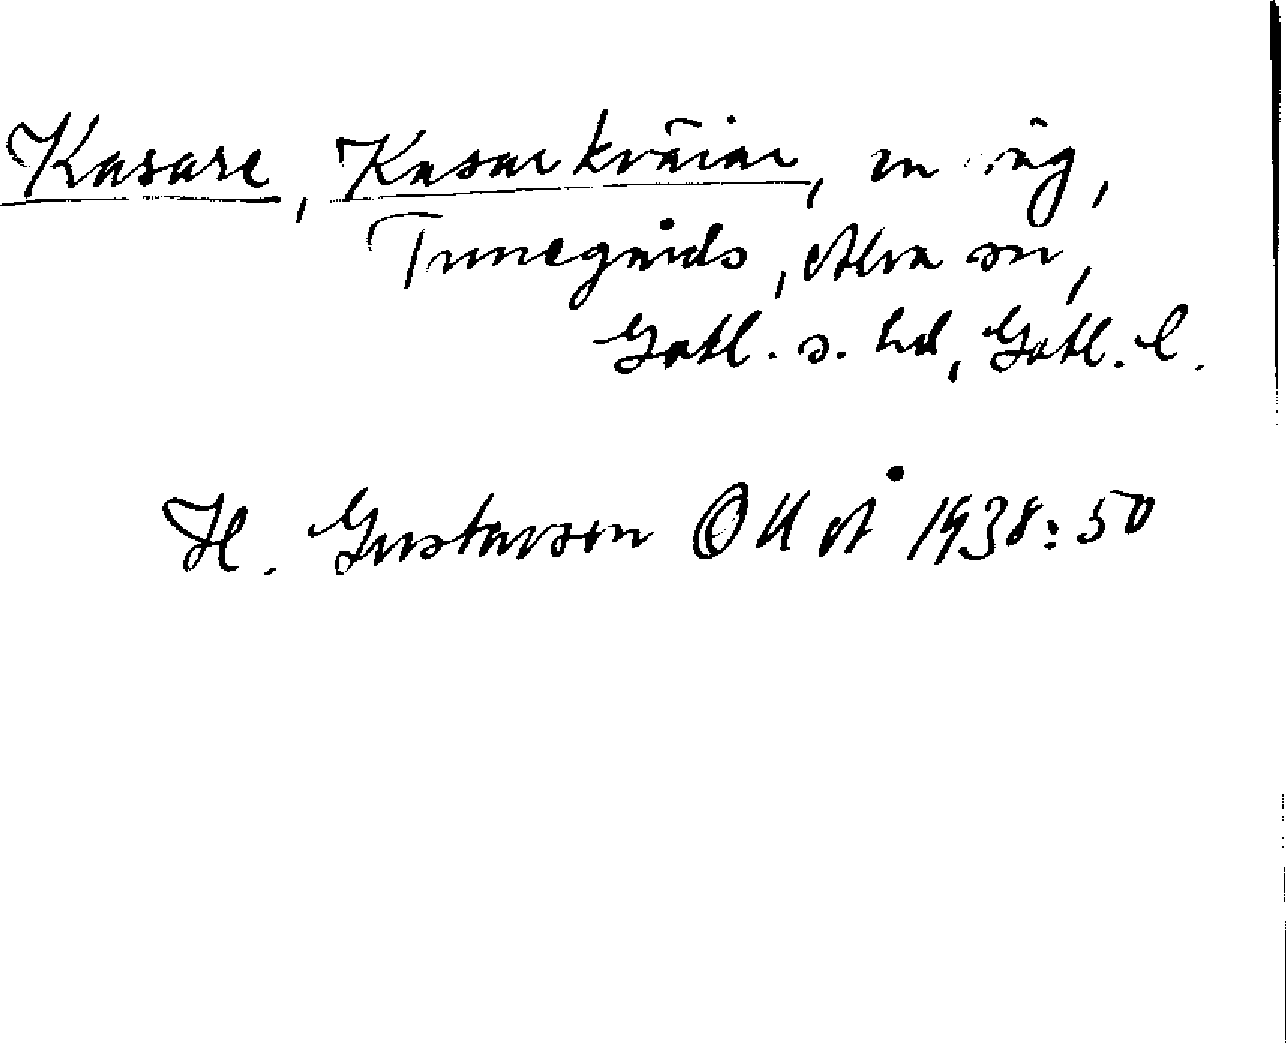 Kasare, Kasarkväiar, en äng,
Tunegårds, Alva sn,
Gotl. s. hd, Gotl. l.
H. Gustavson OUÅ 1938:50